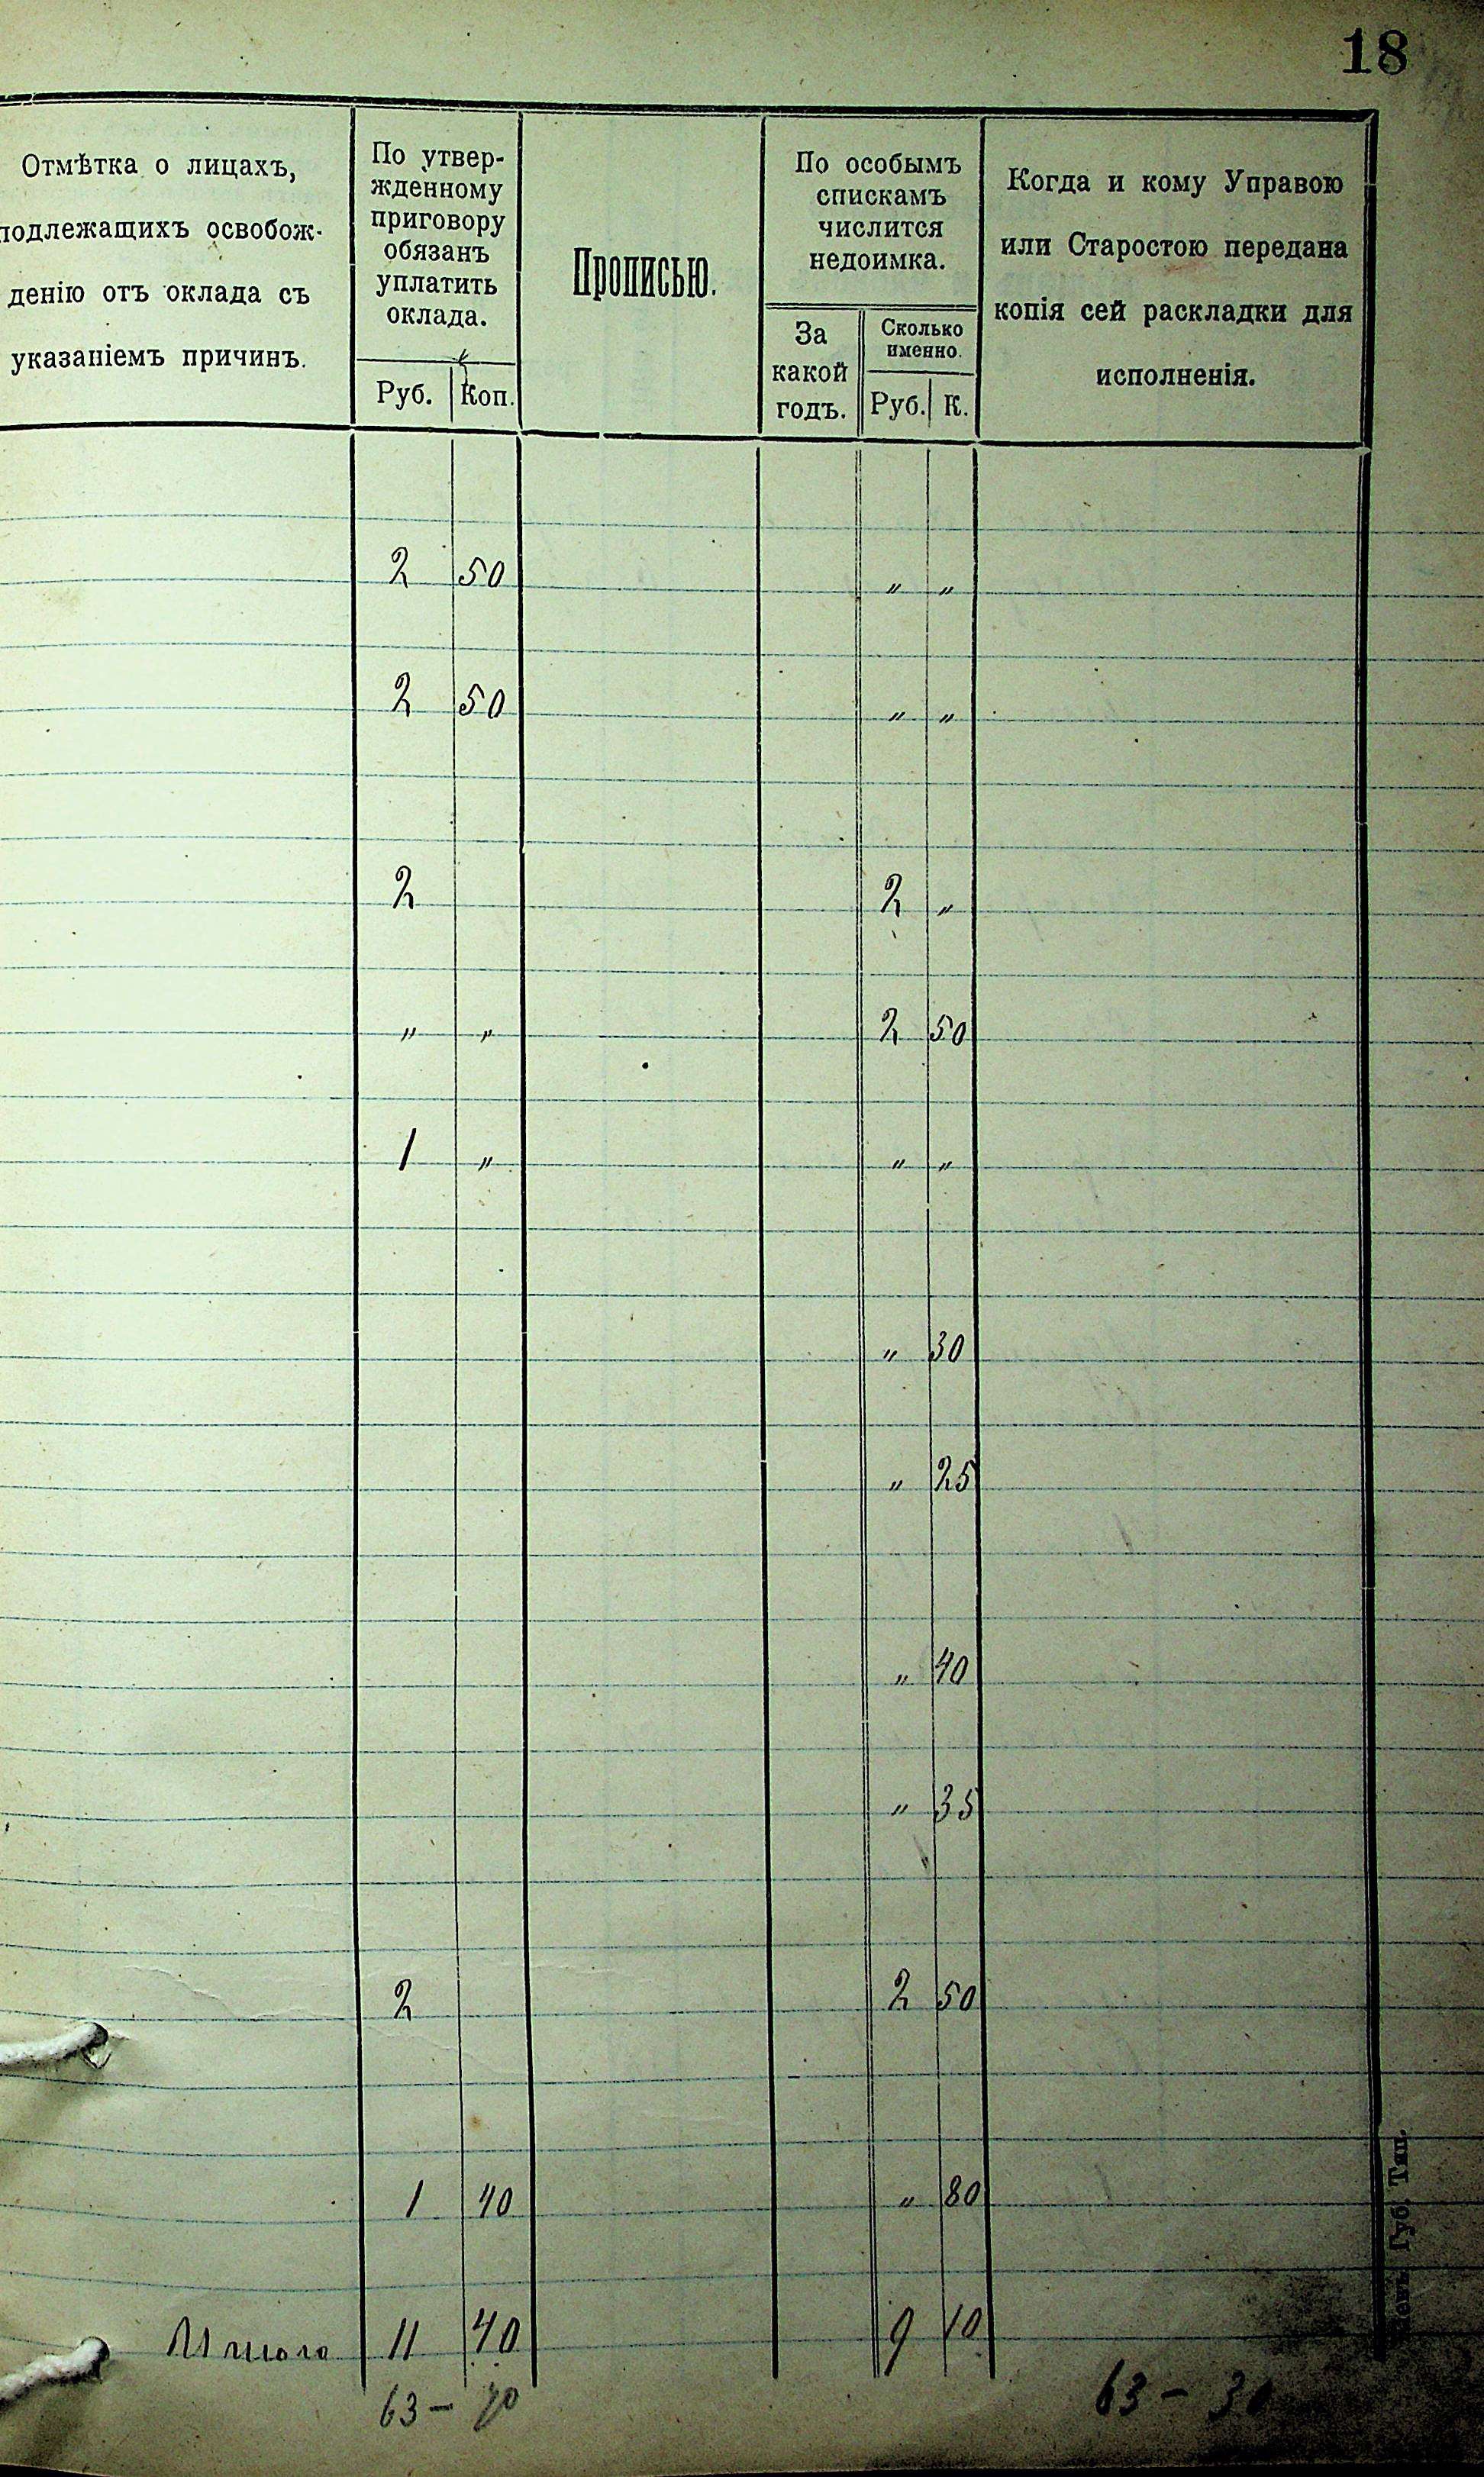 18
Отмѣтка о лицахъ,
подлежащихъ освобож-
денію отъ оклада съ
указаніемъ причинъ.
По утвер-
жденному
приговору
обязанъ
уплатить
оклада.
Руб. Коп.
Прописью.
По особымъ
спискамъ
числится
недоимка.
За
какой
годъ.
Сколько
именно.
Руб. К.
Когда и кому Управою
или Старостою передана
копія сей раскладки для
исполненія.
2 50 " "
2 50 " "
2 2 "
" " 2 50
1 " " "
" 30
" 25
" 40
" 35
2 2 50
1 40 " 80
Итого 11 40 9 10
63 - 63 - 30
Губ. Тип.